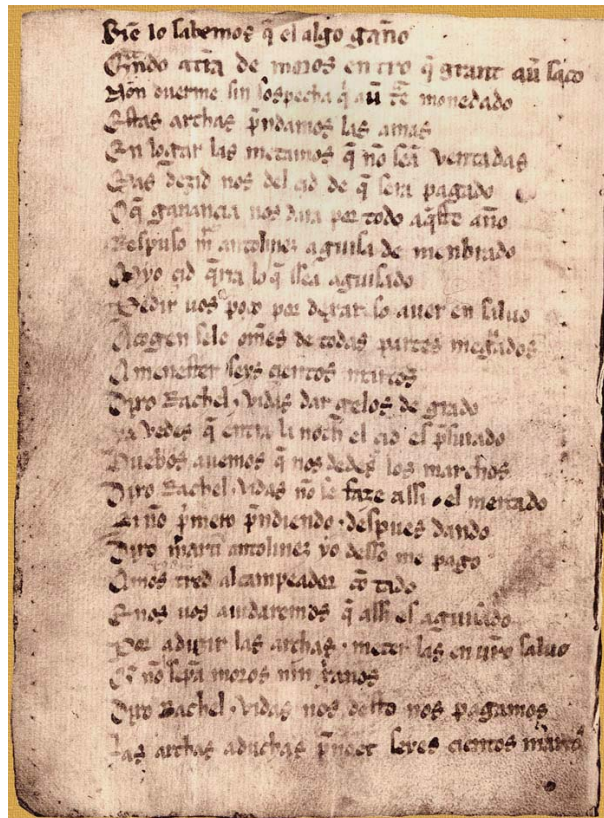 Biē lo sabemos q̄ el algo gaño
Q̄ndo a tr̄ra de moros entro q̄ grant au̅ saco
Non duerme sin sospecha q̄ au̅ trae monedado
Estas archas p̄ndamos las amas
En logar las metamos q̄ nō seā ventadas
Mas dezid nos del çid de q̄ sera pagado
O q̄ ganançia nos dara por todo aq̄ste año
Respuso m̄ antolinez a guisa de menbrado
Myo çid q̄rra lo q̄ ssea aguisado
Pedir uos a poco por dexar so auer en saluo
Acogen sele omēs de todas partes megˢuados
A menester seys çientos marcos
Dixo Rachel ⁊ vidas dar gelos de grado
ya vedes q̄ entra la noch el çid es p̄surado
Huebos auemos q̄ nos dedes los marchos
Dixo Rachel ⁊ vidas nō se faze assi el mercado
Si nō p̄mero p̄ndiendo ⁊ despues dando
Dixo m̄arti antolinez yo desso me pago
Amos tred al campeador cō tado
E nos uos aiudaremos q̄ assi es aguisado
Por aduzir las archas ⁊ meter las en ur̄o saluo
Q̄ nō sepā moros nin xr̄anos
Dixo Rachel ⁊ vidas nos desto nos pagamos
Las archas aduchas p̄ndet seyes çientos marcos